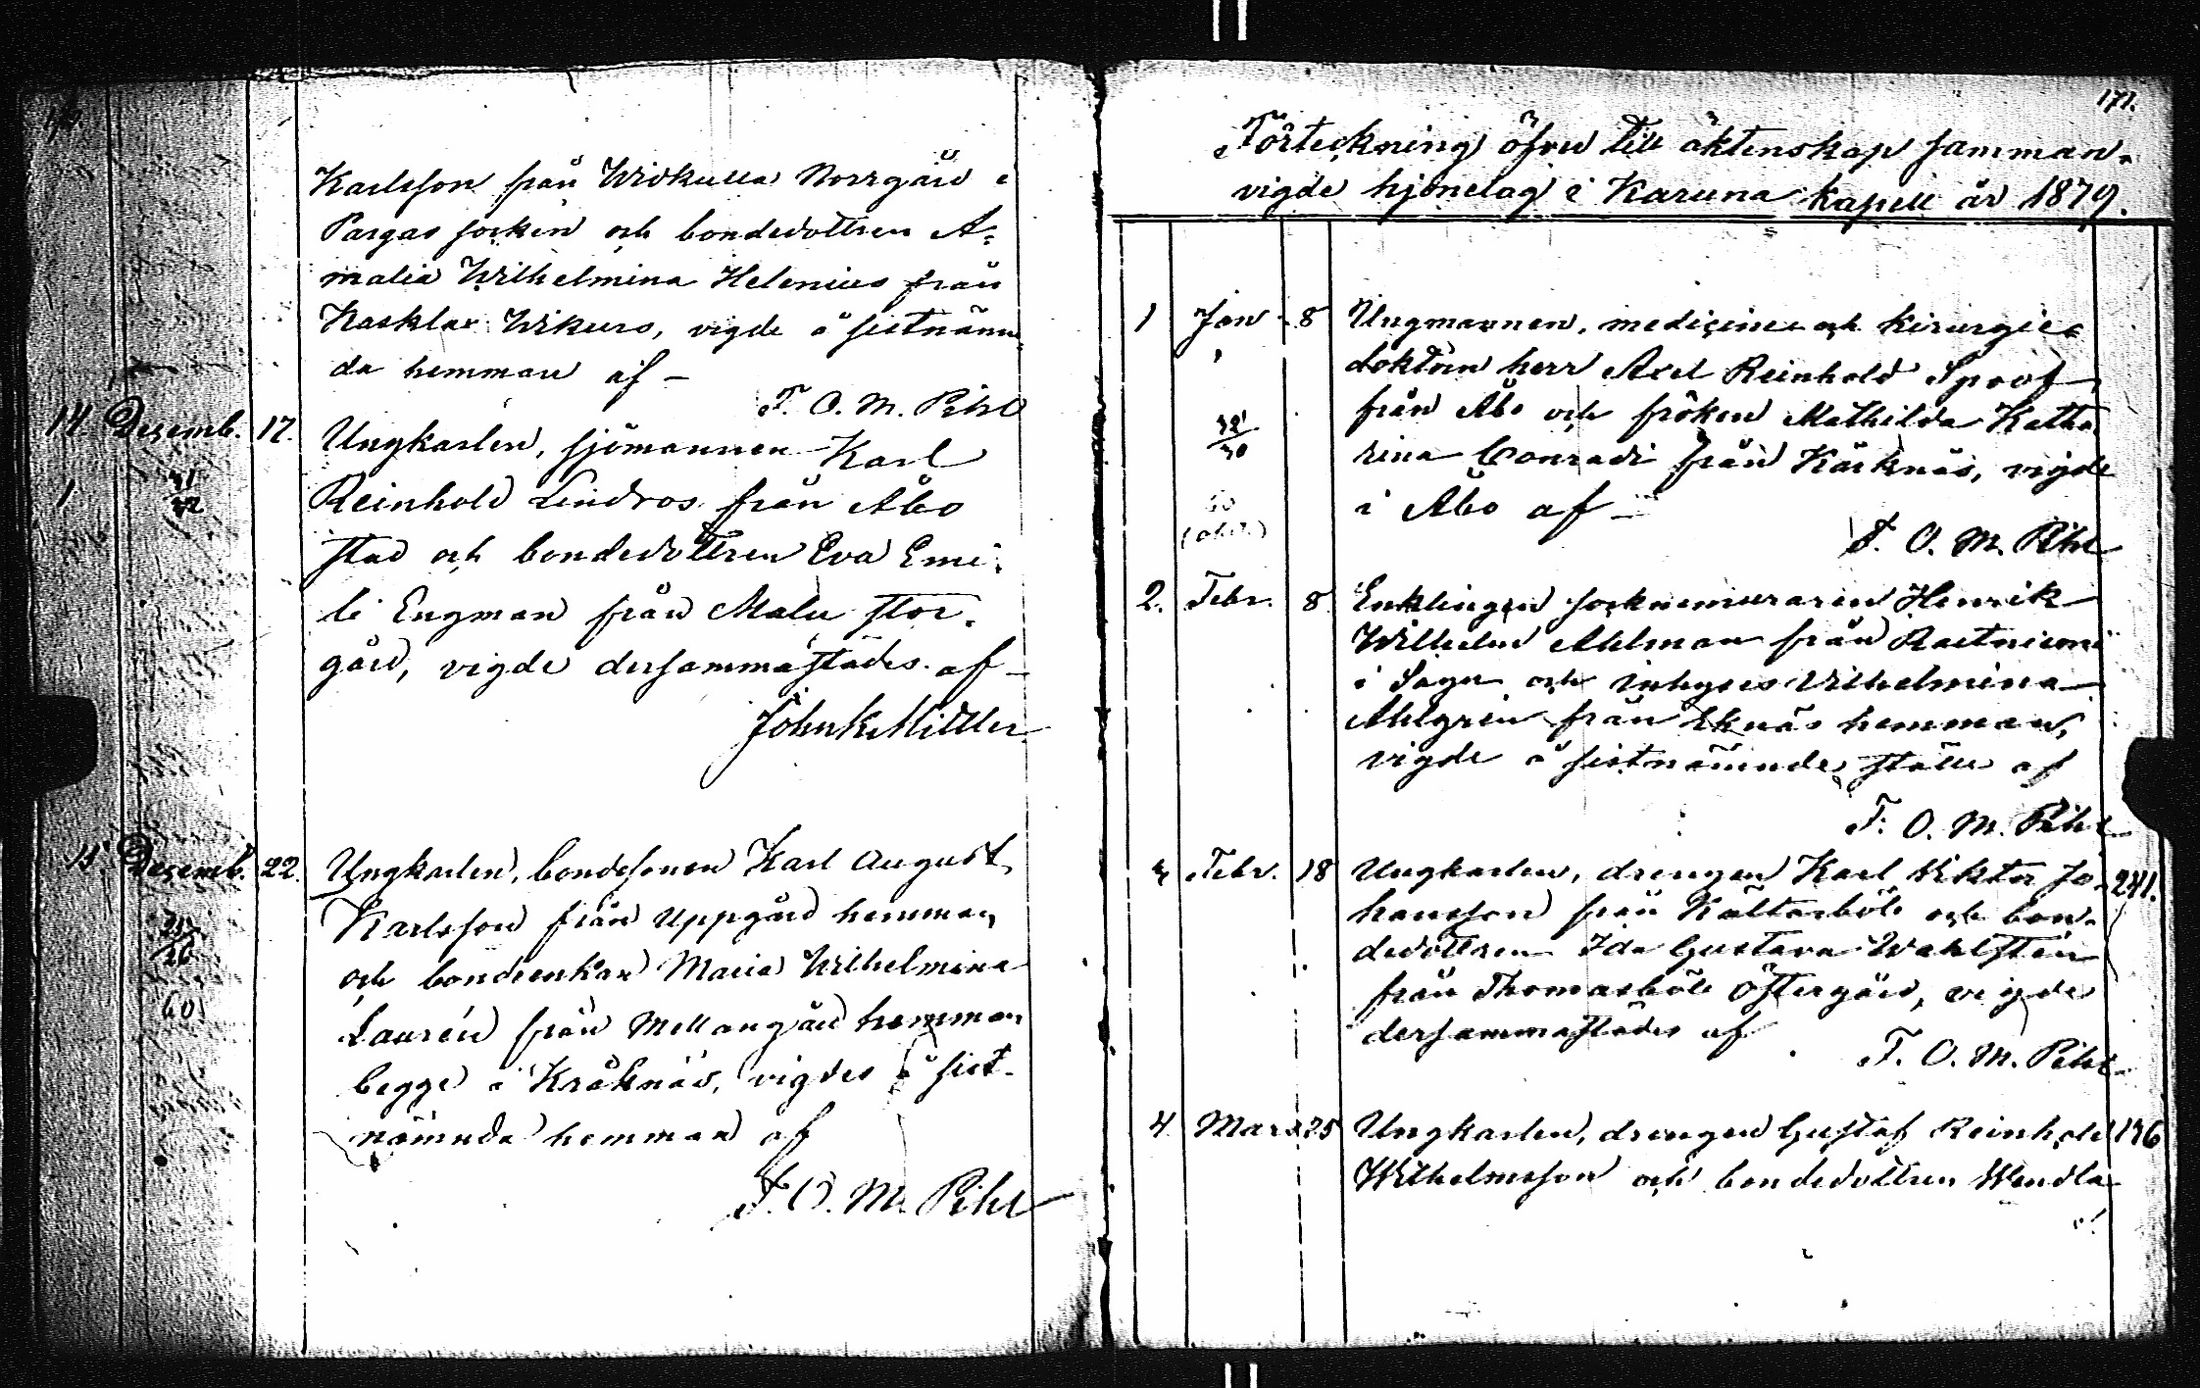 Karlsson från Wirkulla Norrgård i
Pargas socken och bondedottren A-
malia Wilhelmina Helenius från
Kasklax Wikurs, vigde å sistnämn
da hemman af –
F. O. M. Pihl
14 Desemb. 17. Ungkarlen, sjömannen Karl
Reinhold Lindros från Åbo
stad och bondedottren Eva Emi-
li Engman från Malu stor-
gård, vigde dersammastädes af –
John K. Miltler
Desemb. 22. Ungkarlen, bondesonen Karl August
Karlsson från Uppgård hemman
och bondeenkan Maria Wilhelmina
Laurén från Mellangård hemman
begge i Kråknäs, vigdes å sist-
nämnda hemman af
F. O. M. Pihl
171.
Förteckning öfver till äktenskap samman-
vigde hjonelag i Karuna kapell år 1879.
1 Jan 8 Ungmannen, medicine och kirurgie
doktorn herr Axel Reinhold Spoof
från Åbo och fröken Mathilda Katha
rina Conradi från Käsknäs, vigde
i Åbo af –
F. O. M. Pihl
2. Febr. 8 Enklingen socknemuraren Henrik
Wilhelm Ahlman från Rastniemi
i Sagu och inhyses Vilhelmina
Ahlgren från Eknäs hemman,
vigde å sistnämnde ställe af
F. O. M. Pihl
3 Febr. 18 Ungkarlen, drengen Karl Viktor Jo- 241.
hansson från Kältarböle och bon-
dedottren Ida Gustava Wahlsten
från Thomasböle Östergård, vigde
dersammastädes af
F. O. M. Pihl
4. Mars 25 Ungkarlen, drengen Gustaf Reinhold 146
Wilhelmsson och bondedottren Wendla